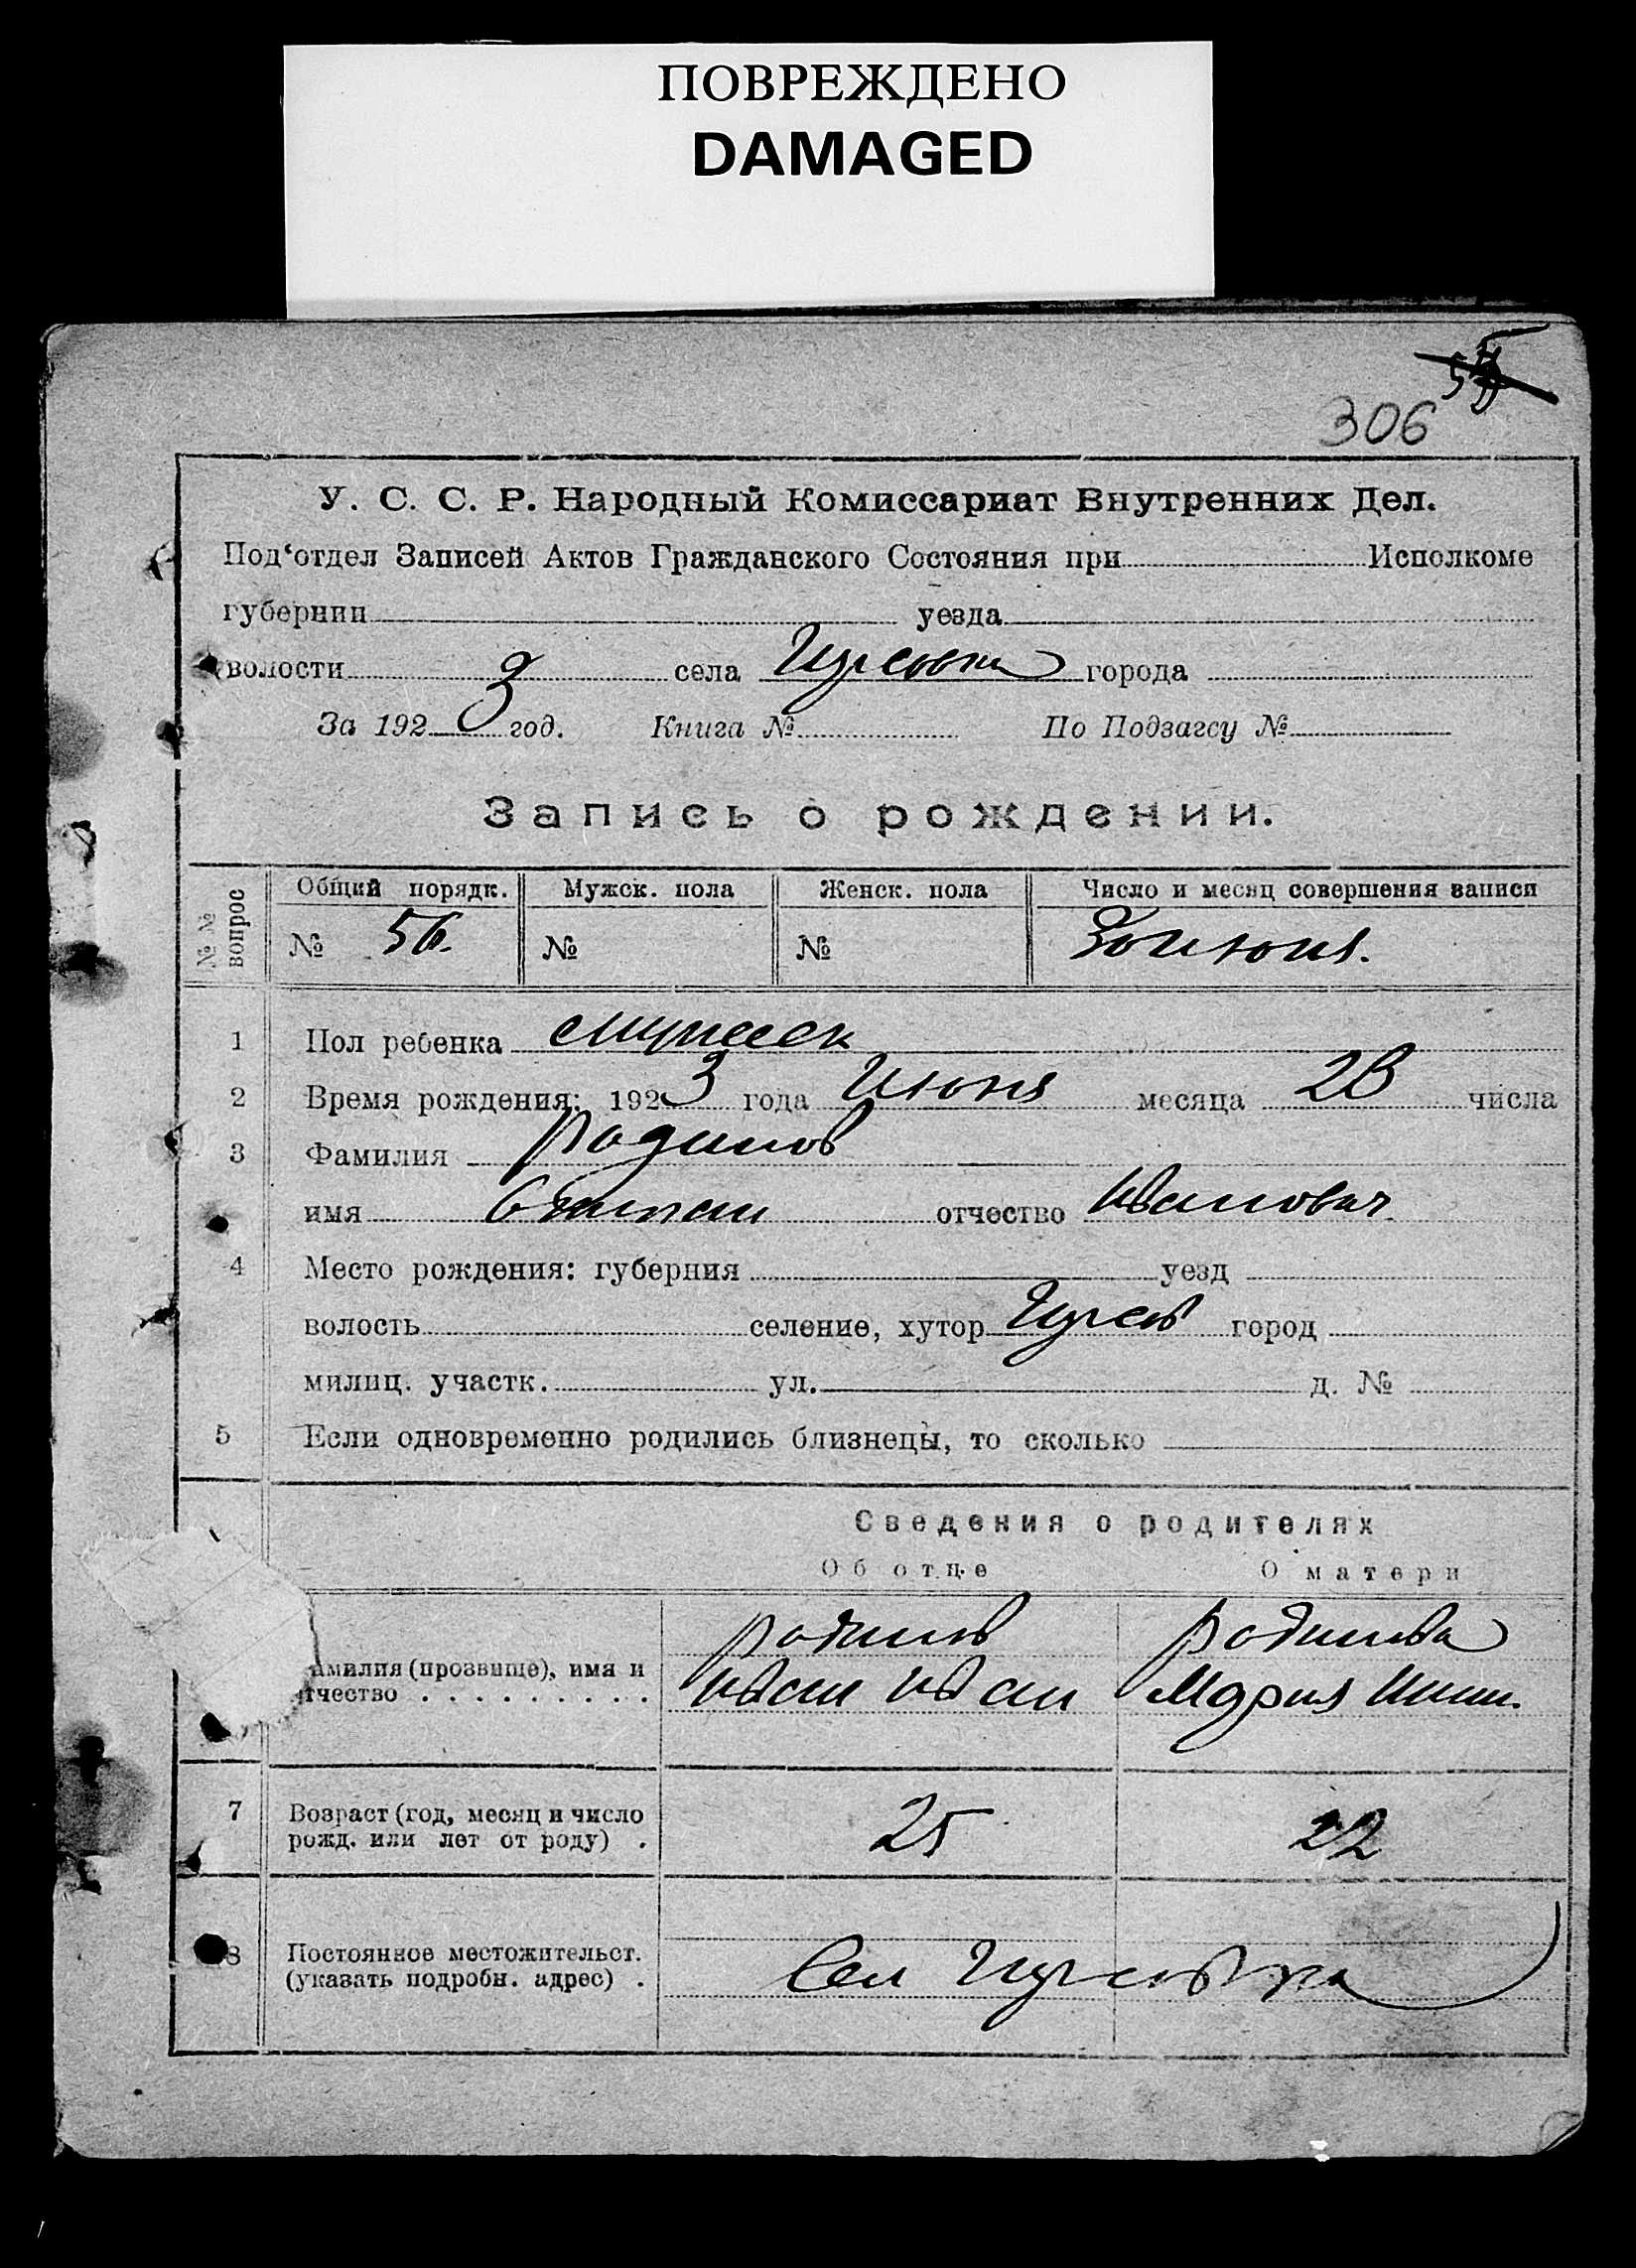 ПОВРЕЖДЕНО
DAMAGED
306
У. С. С. Р. Народный Комиссариат Внутренних Дел.
Под‘отдел Записей Актов Гражданского Состояния при Исполкоме
губернии уезда
волости села города
За 1923 год. Книга № По Подзагсу №
Запись о рождении.
№ № вопрос Общий порядк. Мужск. пола Женск. пола Число и месяц совершения записи
№ 56. № № 30 июня.
1 Пол ребенка
2 Время рождения: 1923 года Июня месяца 28 числа
3 Фамилия Родинов
имя Степан отчество Иванович
4 Место рождения: губерния уезд
волость селение, хутор город
милиц. участк. ул. д. №
5 Если одновременно родились близнецы, то сколько
Сведения о родителях
Об отце О матери
Родинов Родинова
амилия (прозвище), имя и
тчество . . . . . . . . . Иван Иван Мария
7 Возраст (год, месяц и число 25 22
рожд. или лет от роду) .
8 Постоянное местожительст.
(указать подробн. адрес) . Сел